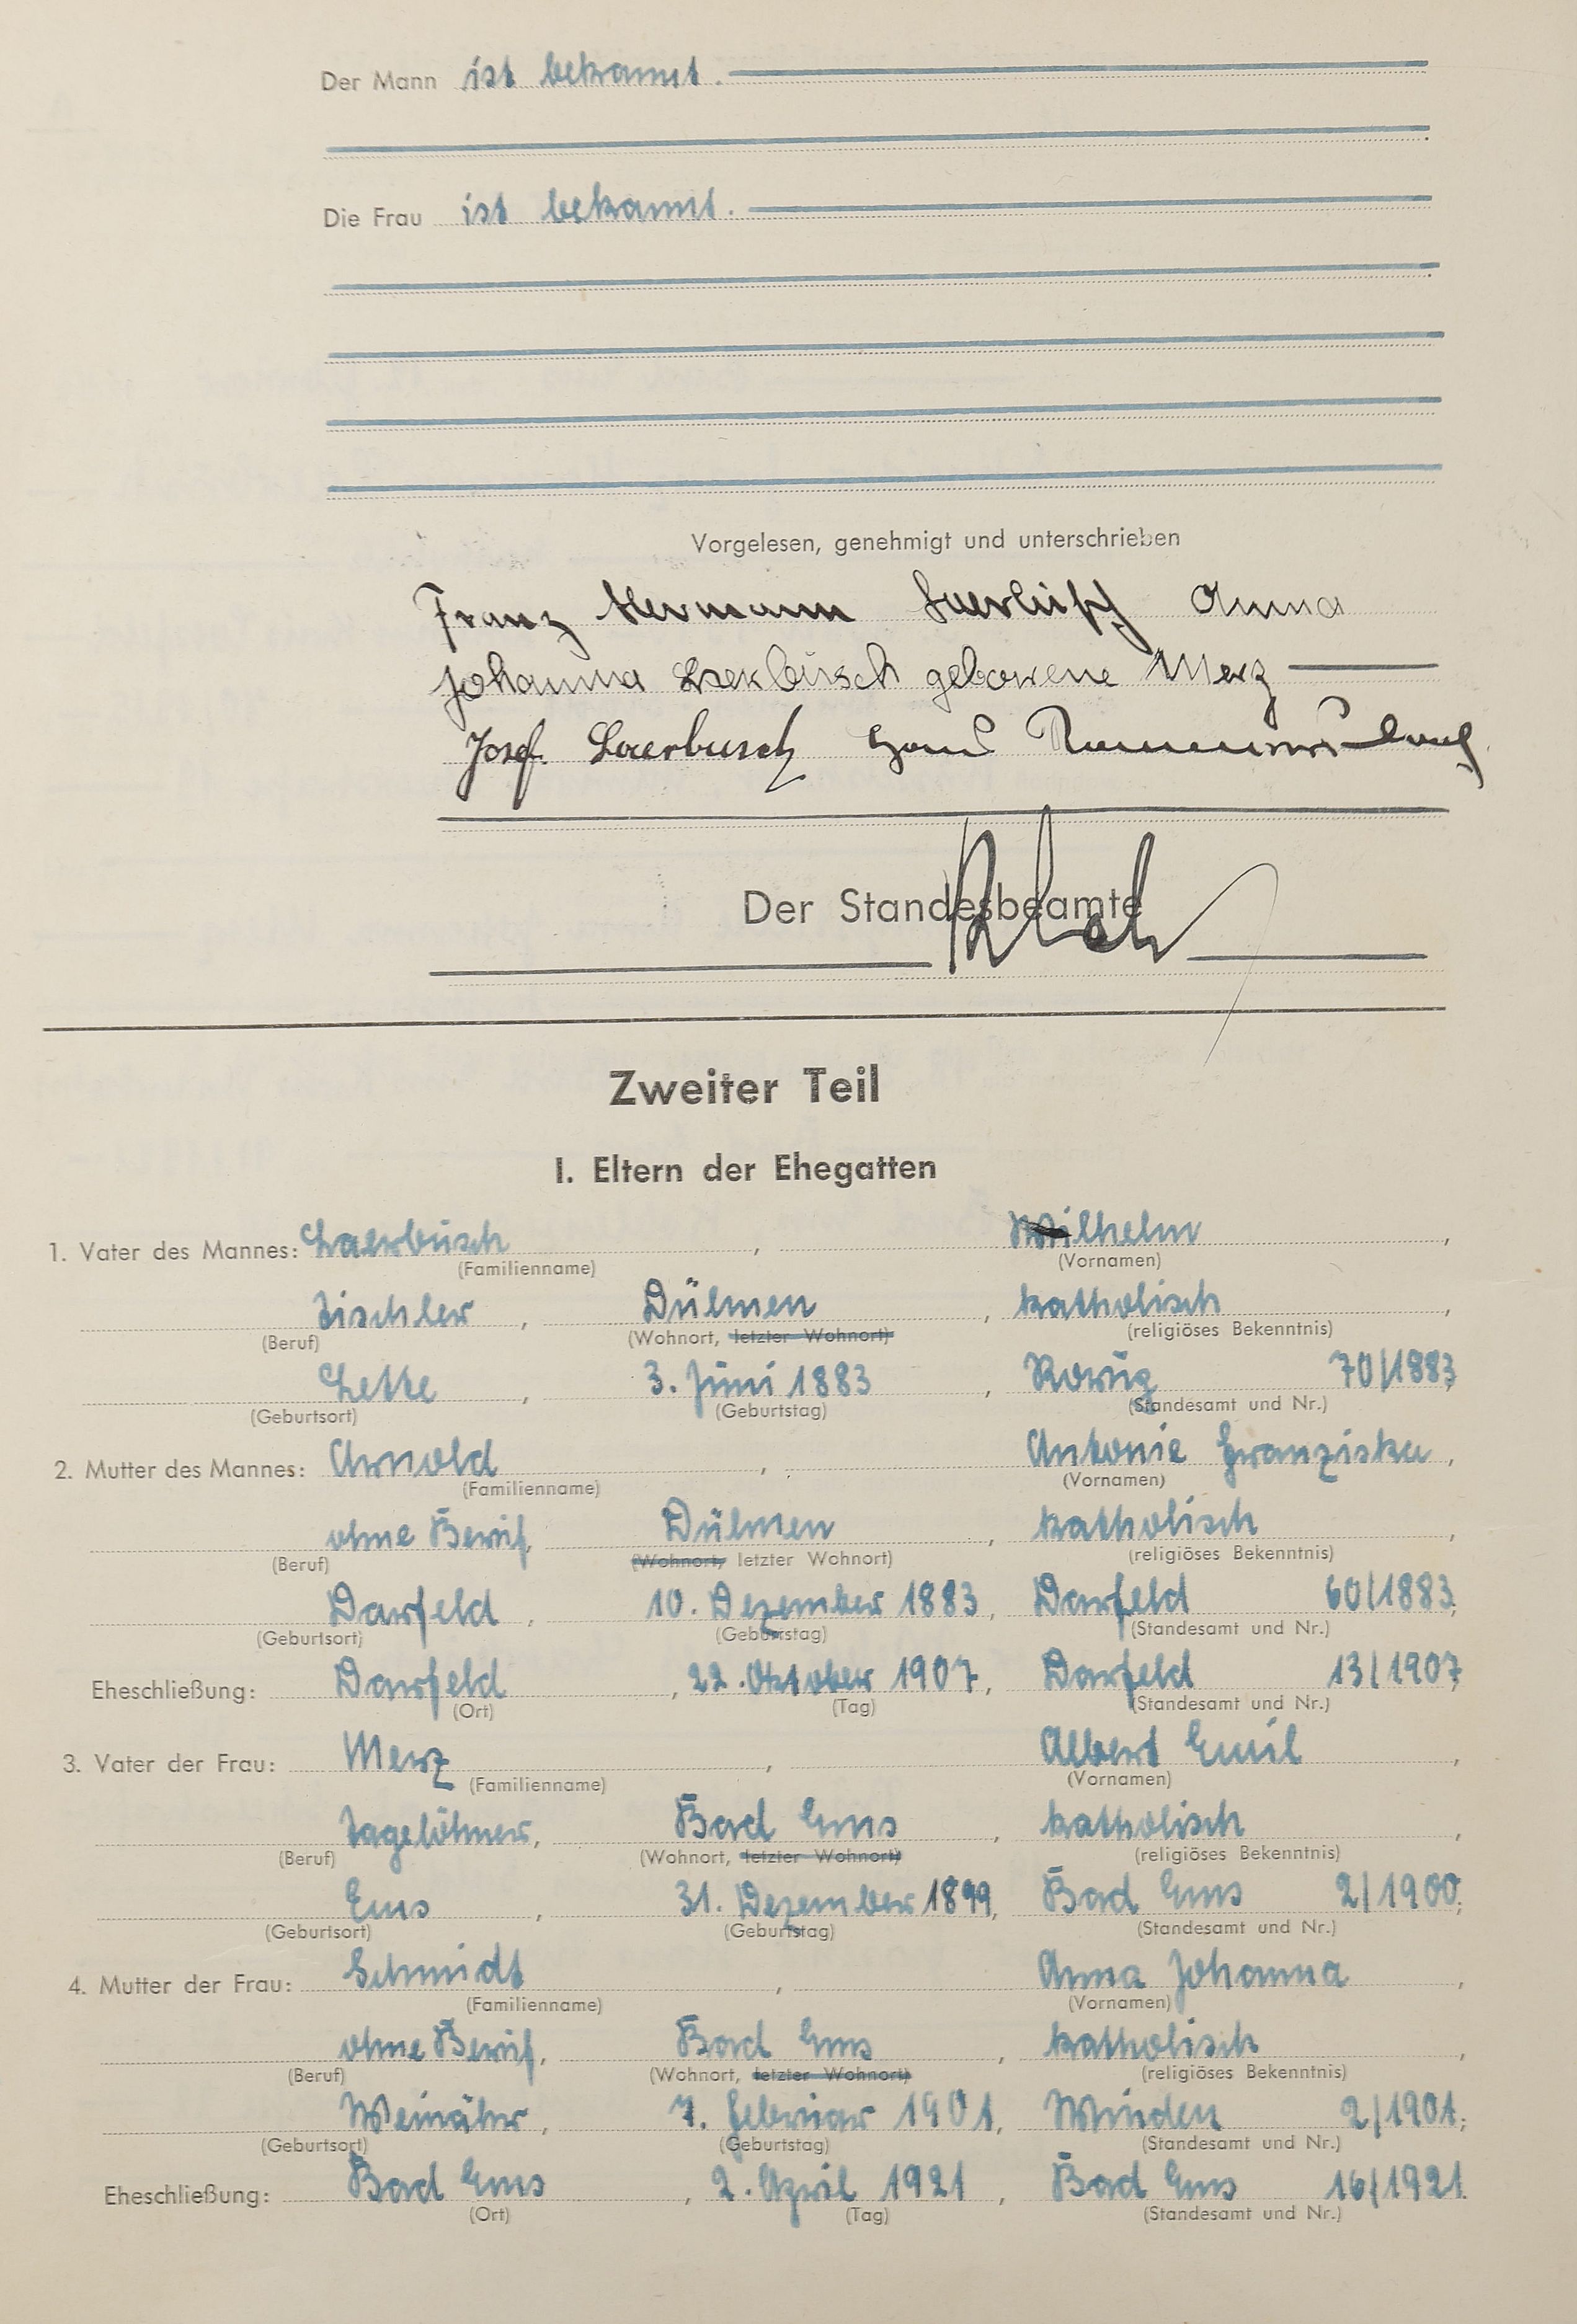 Der Mann ist bekannt.
Die Frau ist bekannt.
Vorgelesen, genehmigt und unterschrieben
Franz Hermann Laerbusch Anna
Johanna Laerbusch geborene Merz
Josef Laerbusch Hans
Der Standesbeamte
Zweiter Teil
I. Eltern der Ehegatten
1. Vater des Mannes: Laerbusch, Wilhelm,
(Familienname) (Vornamen)
Tischler, Dülmen, katholisch,
(Beruf) (Wohnort, letzter Wohnort) (religiöses Bekenntnis)
Lette, 3. Juni 1883, Rorup 70/1883;
(Geburtsort) (Geburtstag) (Standesamt und Nr.)
2. Mutter des Mannes: Arnold, Antonie Franziska,
(Familienname) (Vornamen)
ohne Beruf, Dülmen, katholisch,
(Beruf) (Wohnort, letzter Wohnort) (religiöses Bekenntnis)
Darfeld, 10. Dezember 1883, Darfeld 60/1883;
(Geburtsort) (Geburtstag) (Standesamt und Nr.)
Eheschließung: Darfeld, 22. Oktober 1907, Darfeld 13/1907;
(Ort) (Tag) (Standesamt und Nr.)
3. Vater der Frau: Merz, Albert Emil,
(Familienname) (Vornamen)
Tagelöhner, Bad Ems, katholisch,
(Beruf) (Wohnort, letzter Wohnort) (religiöses Bekenntnis)
Ems, 31. Dezember 1899, Bad Ems 2/1900;
(Geburtsort) (Geburtstag) (Standesamt und Nr.)
4. Mutter der Frau: Schmidt, Anna Johanna,
(Familienname) (Vornamen)
ohne Beruf, Bad Ems, katholisch,
(Beruf) (Wohnort, letzter Wohnort) (religiöses Bekenntnis)
Weinähr, 7. Februar 1901, Winden 2/1901;
(Geburtsort) (Geburtstag) (Standesamt und Nr.)
Eheschließung: Bad Ems, 2. April 1921, Bad Ems 16/1921.
(Ort) (Tag) (Standesamt und Nr.)